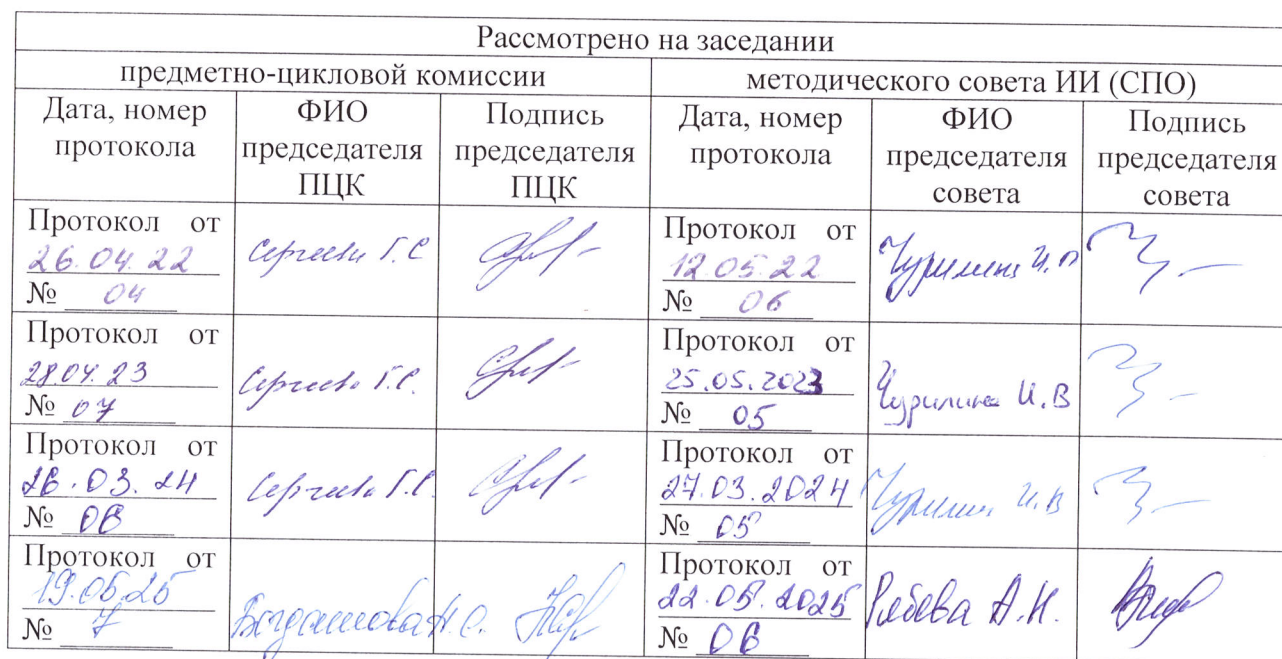 Рассмотрено на заседании
предметно-цикловой комиссии методического совета ИИ (СПО)
Дата, номер протокола ФИО председателя ПЦК Подпись председателя ПЦК Дата, номер протокола ФИО председателя совета Подпись председателя совета
Протокол от 26.04.22 № 04 Сергеева Г.С Протокол от 12.05.22 № 06 Чурилина И.В
Протокол от 28.04.23 № 07 Сергеева Г.С. Протокол от 25.05.2023 № 05 Чурилина И.В
Протокол от 26.03.24 № 06 Сергеева Г.С. Протокол от 27.03.2024 № 05 Чурилина И.В
Протокол от 19.05.25 № 7 Богдашова Н.С. Протокол от 22.05.2025 № 06 Рябова А.Н.